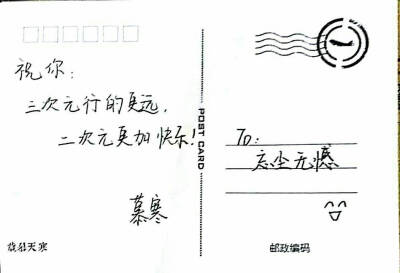 祝你:
三次元行的更远,
二次元更加快乐!
慕寒
POST CARD
TO:
忘尘无憾
邮政编码